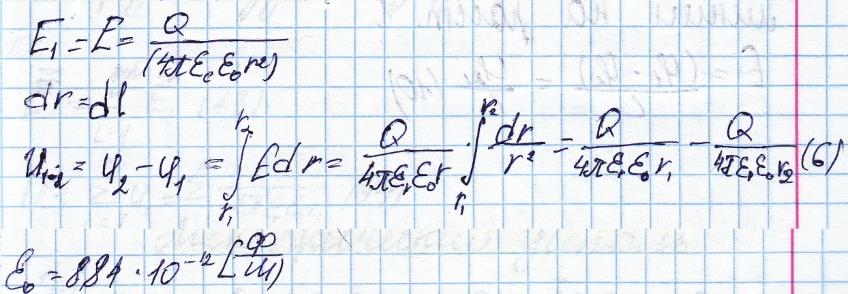 E₁ = E = Q / (4πε₁ε₀r²)
dr = dl
U₁₋₂ = φ₂ - φ₁ = ∫_{r₁}^{r₂} E dr = Q / (4πε₁ε₀r) · ∫_{r₁}^{r₂} dr / r² = Q / (4πε₁ε₀r₁) - Q / (4πε₁ε₀r₂) (6)
ε₀ = 8,84 · 10⁻¹² [ф/м]